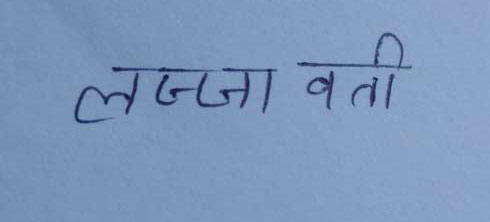 लज्जा वती